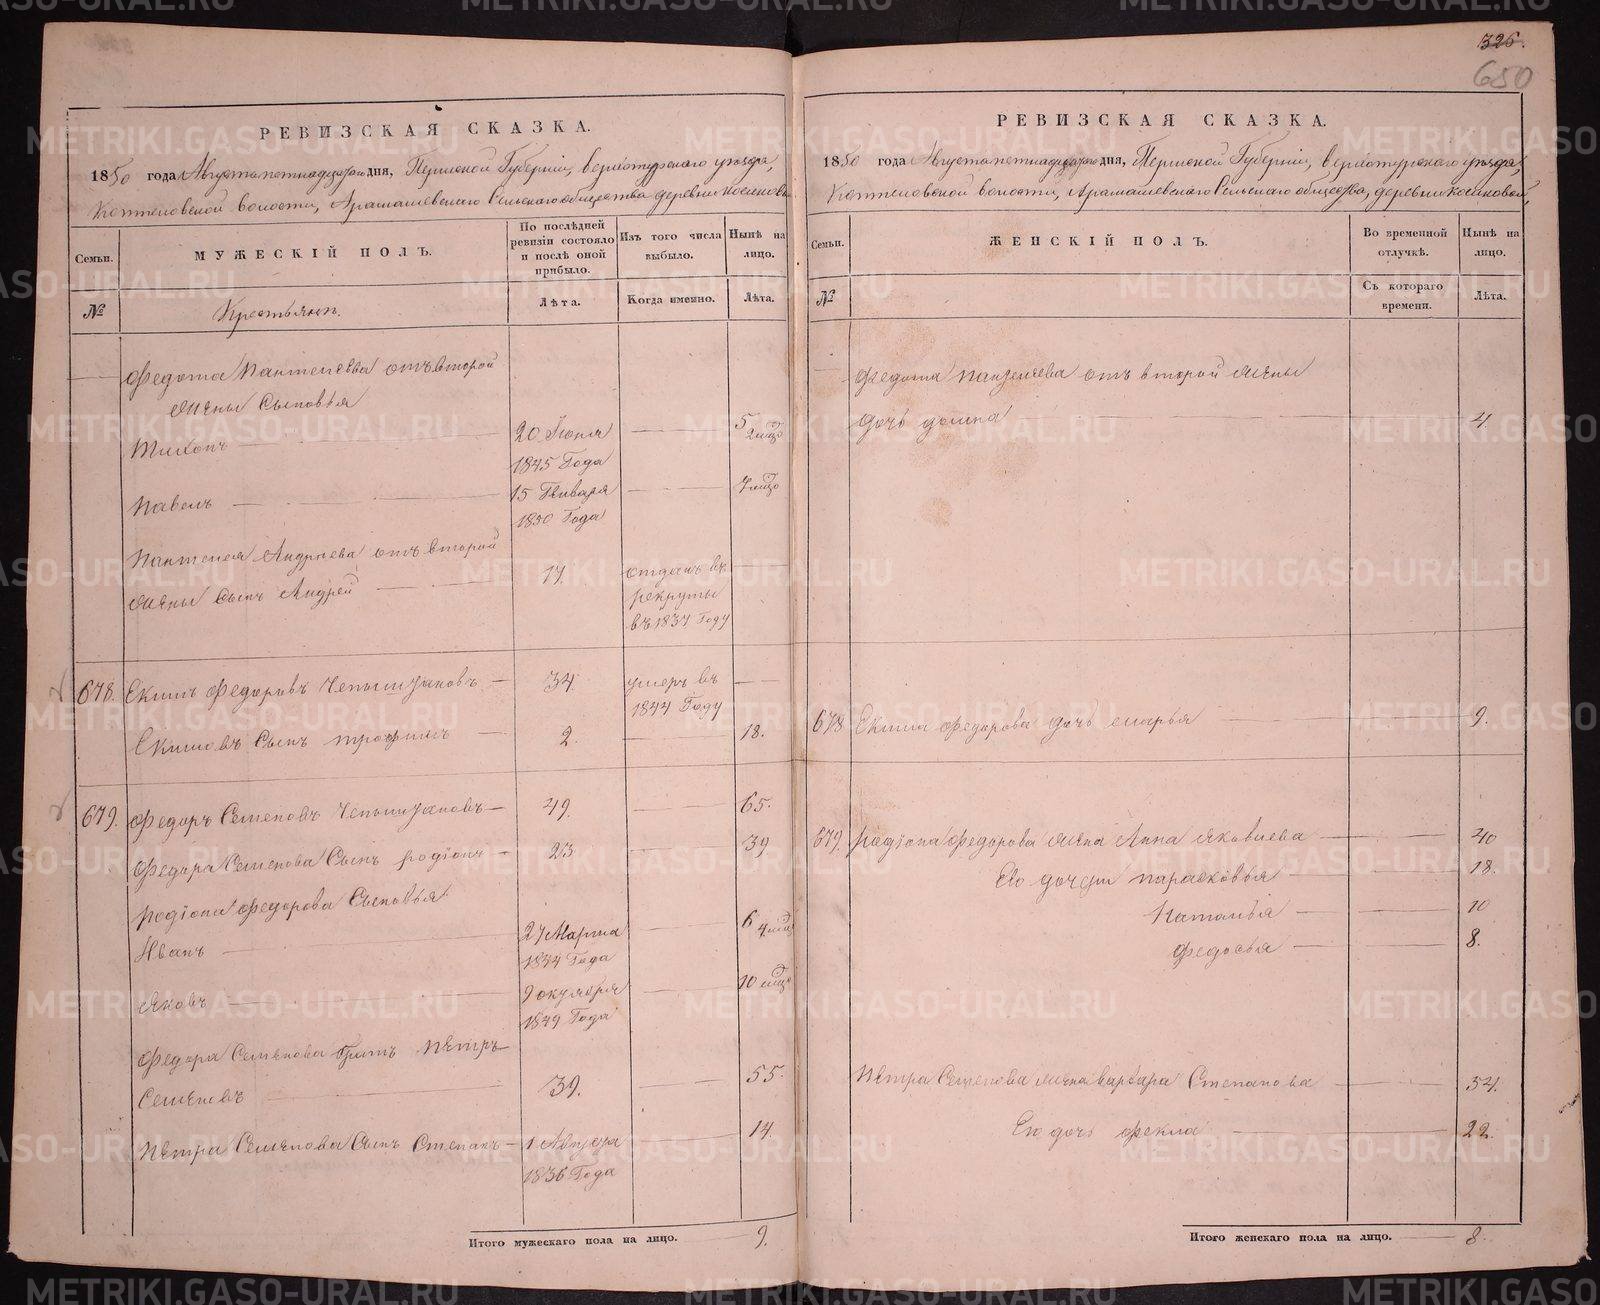 326.
650
РЕВИЗСКАЯ СКАЗКА.
1850 года Августа пятнадцатого дня, Пермской Губерніи, Верхотурскаго уѣзда,
волости, Арамашевскаго Сельскаго общества деревни
Семьи.
МУЖЕСКІЙ ПОЛЪ.
По послѣдней ревизіи состояло и послѣ оной прибыло.
Изъ того числа выбыло.
Нынѣ на лицо.
№
Крестьянъ.
Лѣта.
Когда именно.
Лѣта.
Федота Пантелеева отъ второй
жены Сыновья
Тихонъ 20 Іюня 1845 Года 5
Павелъ 15 Генваря 1850 Года 7 мѣс
Пантелея Андреева отъ второй
жены Сынъ Андрей 17. отданъ въ рекруты въ 1837 Году
678. Екимъ Федоровъ Чепчуговъ 34 умеръ въ 1844 Году
Екимовъ Сынъ Трофимъ 2. 18.
679. Федоръ Семеновъ Чепчуговъ 49. 65.
Федора Семенова Сынъ Родіонъ 23 39
Родіона Федорова Сыновья
Иванъ 27 Марта 1844 Года 6 4 мѣс
Яковъ 9 октября 1849 Года 10 мѣс
Федора Семенова братъ Петръ
Семеновъ 39. 55.
Петра Семенова Сынъ Степанъ 1 Августа 1836 Года 14.
Итого мужескаго пола на лицо. 9.
РЕВИЗСКАЯ СКАЗКА.
1850 года Августа пятнадцатого дня, Пермской Губерніи, Верхотурскаго уѣзда,
волости, Арамашевскаго Сельскаго общества, деревни
Семьи.
ЖЕНСКІЙ ПОЛЪ.
Во временной отлучкѣ.
Нынѣ на лицо.
№
Съ котораго времени.
Лѣта.
Федота Пантелеева отъ второй жены
дочь Домна 4.
678 Екима Федорова дочь Марья 9.
679. Родіона Федорова жена Анна Яковлева 40
Его дочери Парасковья 18.
Наталья 10
Федосья 8.
Петра Семенова жена Варвара Степанова 54.
Его дочь Фекла 22.
Итого женскаго пола на лицо. 8.
METRIKI.GASO-URAL.RU